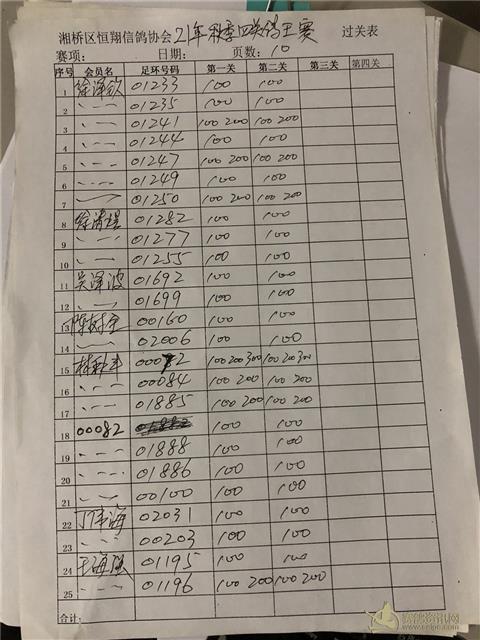 湘桥区恒翔信鸽协会21年秋季四关鸽王赛 过关表
赛项: 日期: 页数: 10
序号 会员名 足环号码 第一关 第二关 第三关 第四关
1 徐泽欣 01233 100 100
2 、一一 01235 100 100
3 、一一 01241 100 200 100 200
4 、一一 01244 100 100
5 、一一 01247 100 200 100 200
6 、一一 01249 100 100
7 01250 100 200 100 200
8 01282 100 100
9 、一、 01277 100 100
10 、一、 01255 100 100
11 吴泽波 01692 100 100
12 、一、 01699 100 100
13 陈树 00160 100 100
14 、一 02006 100 100
15 林 00072 100 200 300 100 200 300
16 、一一 00084 100 200 100 200
17 、一一 01885 100 200 100 200
18 00082 100 100
19 、一一 01888 100 100
20 、一一 01886 100 100
21 、一一 00100 100 100
22 丁伟海 02031 100 100
23 、一、 00203 100 100
24 王海 01195 100 100
25 、一一 01196 100 200 100 200
合计:
赛鸽资讯网